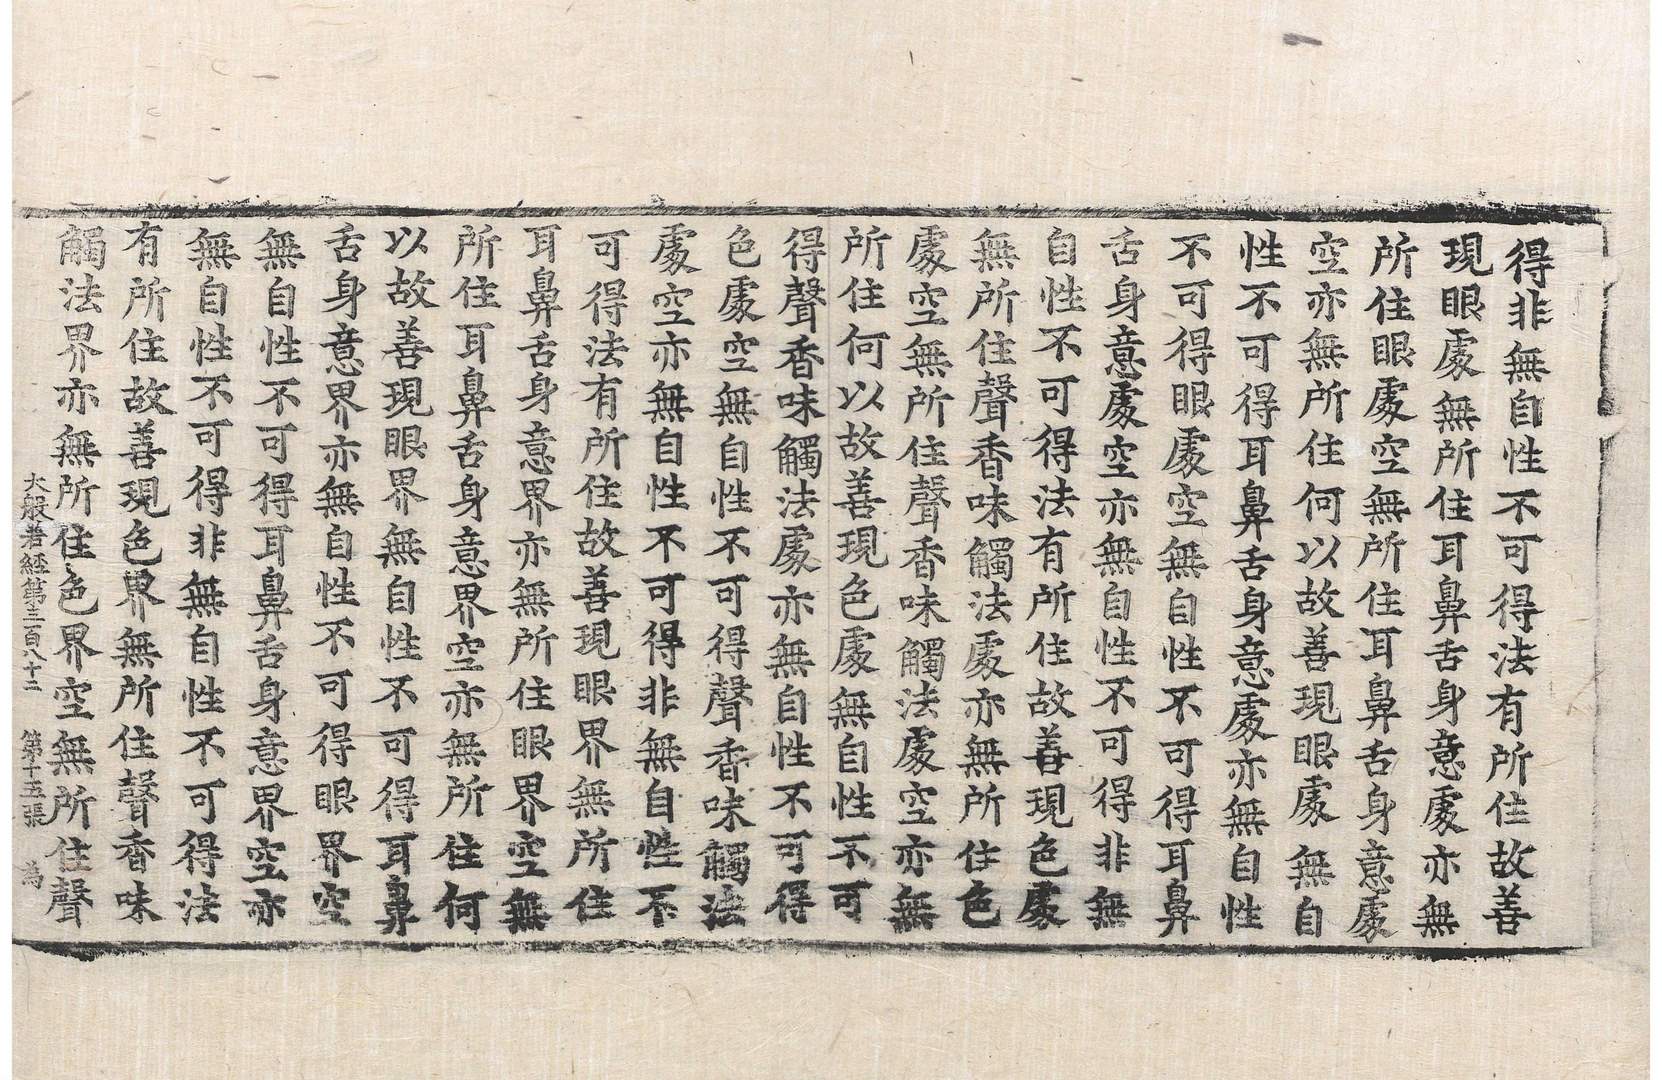 得非無自性不可得法有所住故善
現眼處無所住耳鼻舌身意處亦無
所住眼處空無所住耳鼻舌身意處
空亦無所住何以故善現眼處無自
性不可得耳鼻舌身意處亦無自性
不可得眼處空無自性不可得耳鼻
舌身意處空亦無自性不可得非無
自性不可得法有所住故善現色處
無所住聲香味觸法處亦無所住色
處空無所住聲香味觸法處空亦無
所住何以故善現色處無自性不可
得聲香味觸法處亦無自性不可得
色處空無自性不可得聲香味觸法
處空亦無自性不可得非無自性不
可得法有所住故善現眼界無所住
耳鼻舌身意界亦無所住眼界空無
所住耳鼻舌身意界空亦無所住何
以故善現眼界無自性不可得耳鼻
舌身意界亦無自性不可得眼界空
無自性不可得耳鼻舌身意界空亦
無自性不可得非無自性不可得法
有所住故善現色界無所住聲香味
觸法界亦無所住色界空無所住聲
大般若經第三百八十二 第十五張 為